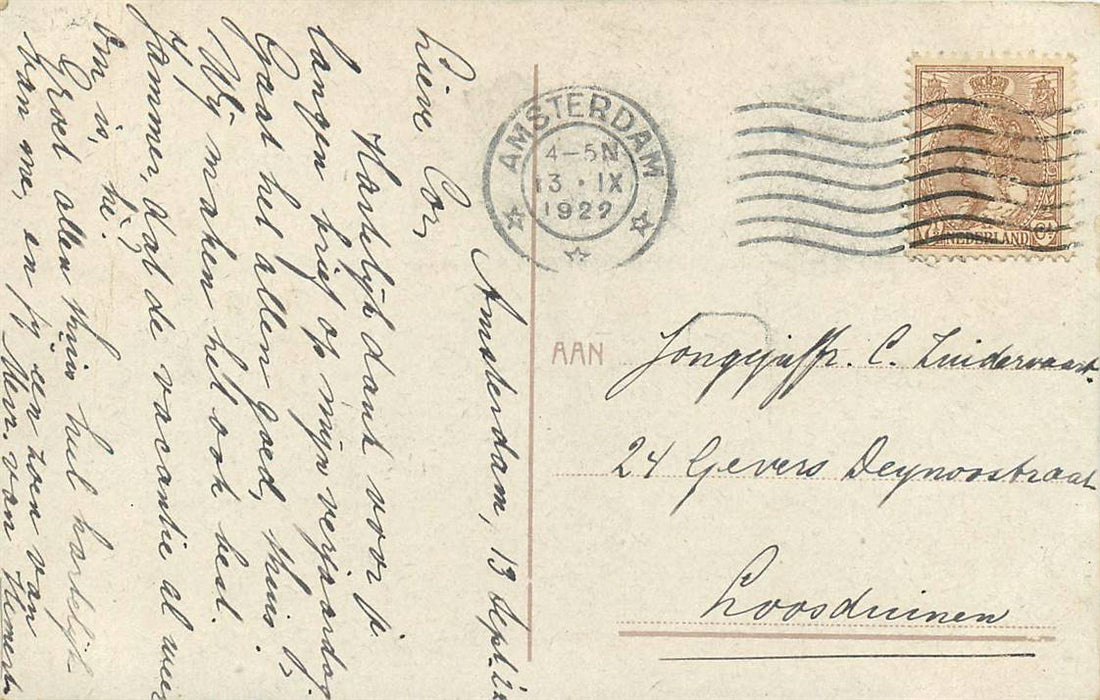 Amsterdam, 13 Sept.
Lieve Cor,
Hartelijk dank voor je
langen brief op mijn verjaardag.
Gaat het allen goed, thuis?
Wij maken het ook best.
Jammer, dat de vacantie al weer
om is, hè?
Groet allen thuis heel hartelijk
van me, en jij een zoen van
Mevr. van
AMSTERDAM
4-5N
13 · IX
1922
7½ Ct
NEDERLAND
AAN Jongejuffr. C. Zuidervaart
24 Gevers Deynoostraat
Loosduinen